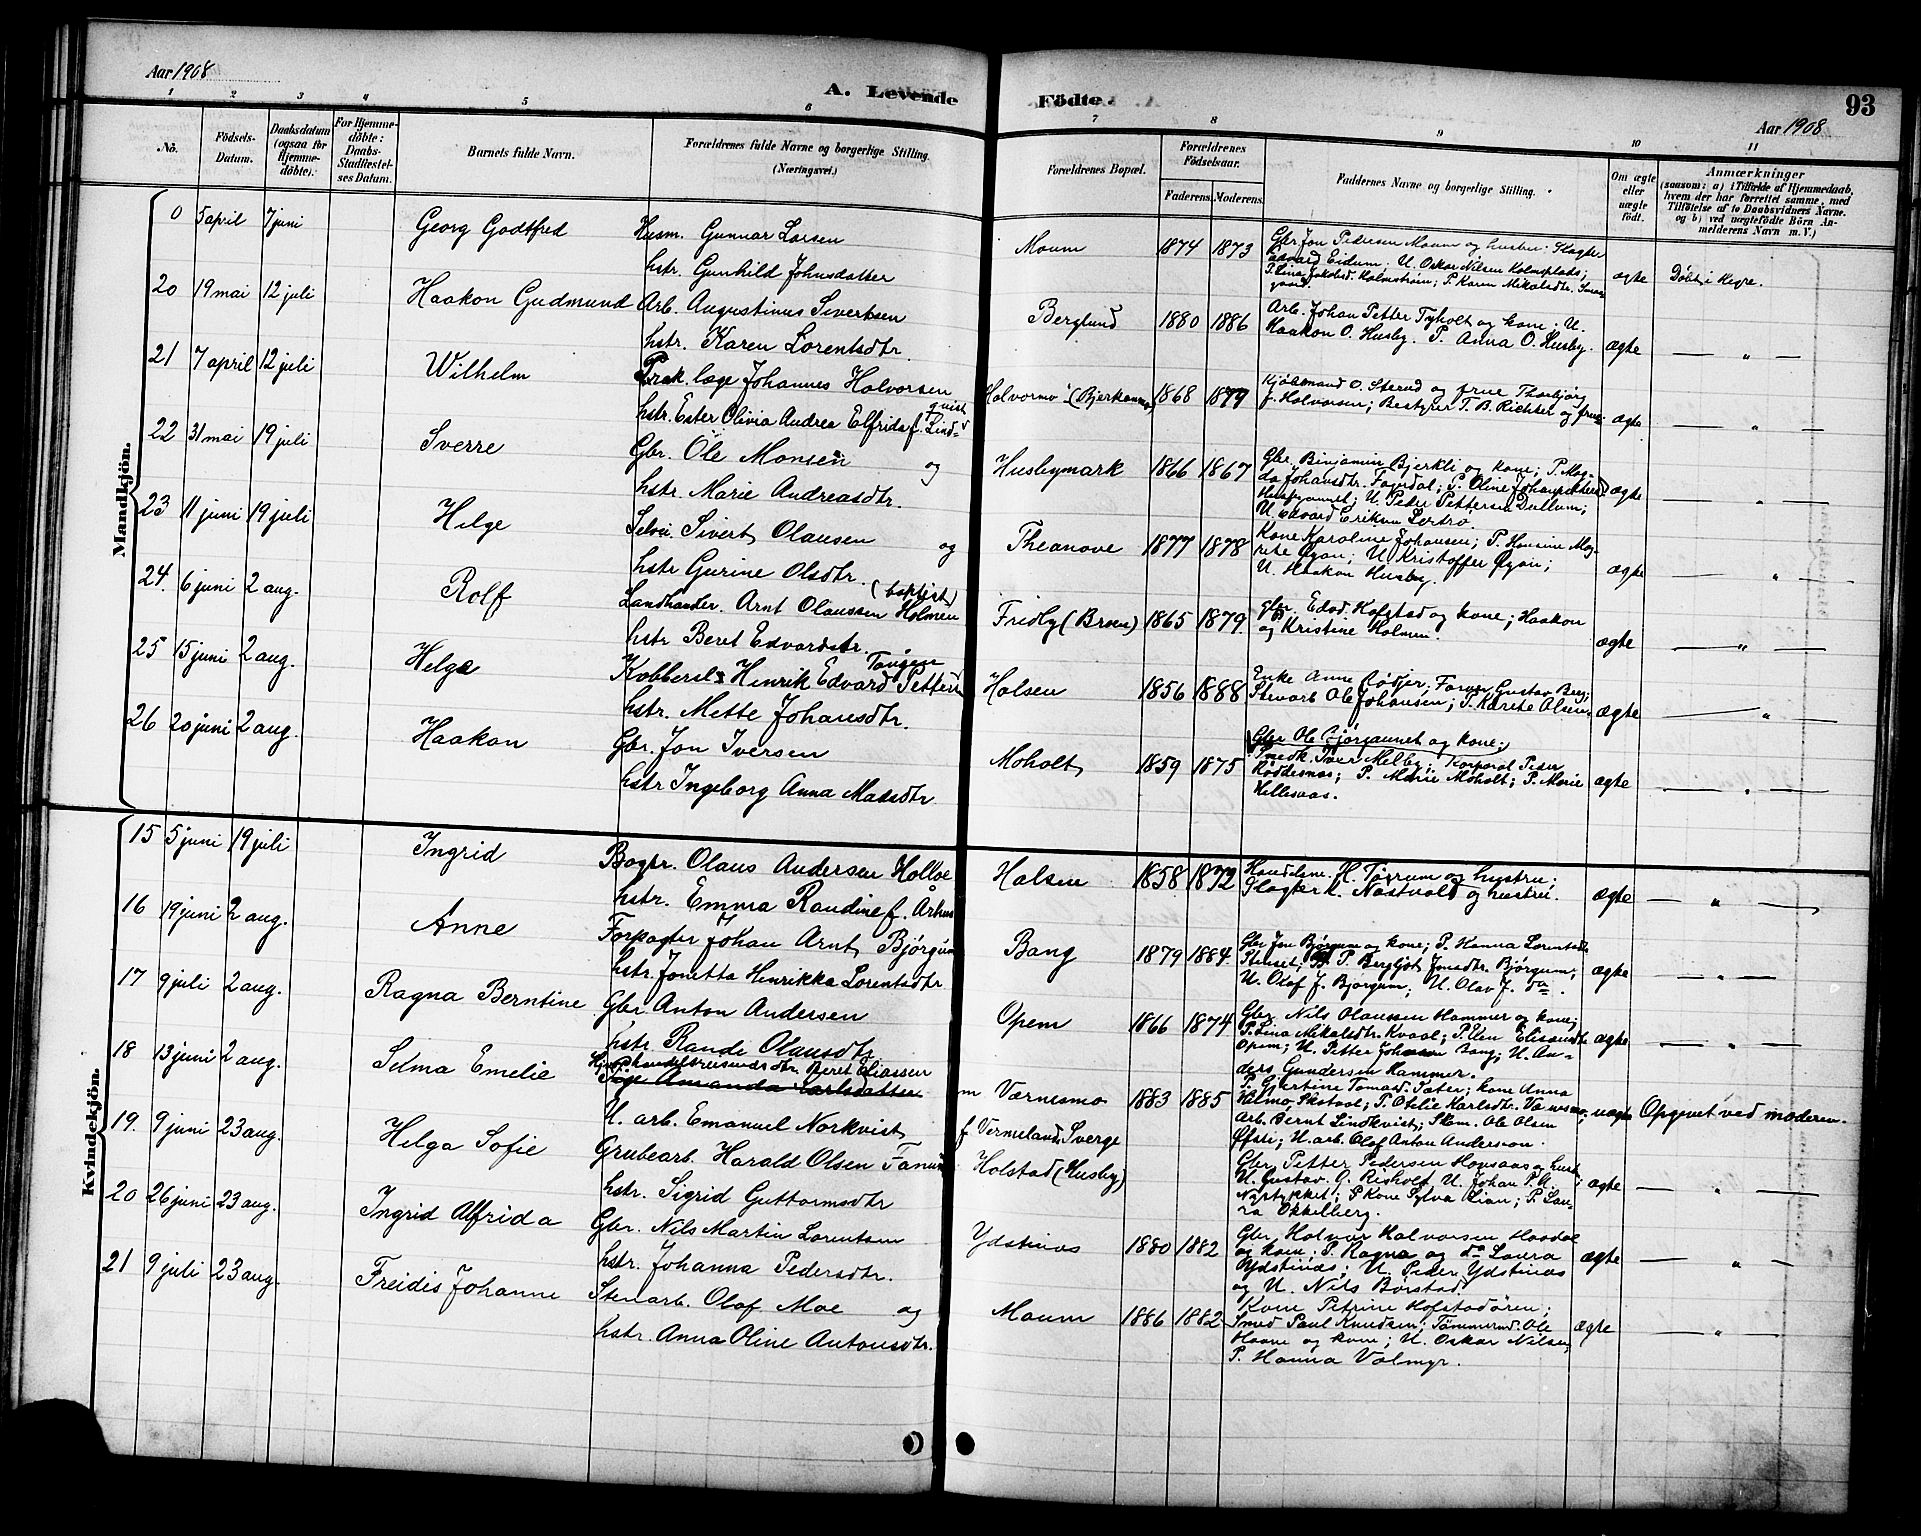 Aar 1908
A. Levende Födte.
Aar 1908
93
1 2 3 4 5 6 7 8 9 10 11
No.
Födsels-Datum.
Daabsdatum (ogsaa for Hjemme-döbte).
For Hjemme-döbte: Daabs-Stadfestel-ses Datum.
Barnets fulde Navn.
Forældrenes fulde Navne og borgerlige Stilling.
(Næringsvei.)
Forældrenes Bopæl.
Forældrenes Födselsaar.
Faderens. Moderens.
Faddernes Navne og borgerlige Stilling.
Om ægte eller uægte födt.
Anmærkninger
(saasom: a) i Tilfælde af Hjemmedaab,
hvem der har forrettet samme, med
Tilföielse af to Daabsvidners Navne.
og b) ved uægtefödte Börn An-
melderens Navn m. V.)
Mandkjön.
0 5 april 7 juni Georg Godtfred Husm. Gunnar Larsen
hstr. Gunhild Johnsdatter
Moum 1874 1873
Gbr Jon Pedersen Moum og hustru. Slagter
Edvard Eidum. U. Oskar Nilsen Holmsplads;
P. Lina Jakobsd. Holmstrøm; P. Karen Mikalsdtr.
ægte Döbt i Hegre.
20 19 mai 12 juli Haakon Gudmund Arb. Augustinus Sivertsen
hstr. Karen Lorentsdtr.
Berglund 1880 1886
Arb. Johan Petter Tyholt og kone; U.
Haakon O. Husby. P. Anna O. Husby.
ægte — " —
21 7 april 12 juli Wilhelm Prak. læge Johannes Halvorsen
hstr. Ester Olivia Andrea Elfrida f. Lind-
qvist
Halvormo (Bjerkanmo) 1868 1879
Kjøbmand O. Sterud og frue Thorbjørg
f. Halvorsen; Bestyrer T. B. Richter og frue
ægte — " —
22 31 mai 19 juli Sverre Gbr. Ole Monsen og
hstr. Marie Andreasdtr.
Husbymark 1866 1867
Gbr. Binjamin Bjerkli og kone; P. Mag-
da Johansdtr. Fagerdal; P. Oline
U. Peder Pettersen Dullum;
U. Edvard Eriksen Lertrø.
ægte — " —
23 11 juni 19 juli Helge Selvei Sivert Olausen og
hstr Gurine Olsdtr.
Theanove 1877 1878
Kone Karoline Johansen; P. Hansine Mag-
rete Øyan; U. Kristoffer Øyan;
U. Haakon Husby.
ægte — " —
24. 6 juni 2 aug. Rolf Landhandler Arnt Olaussen Holmen
(baptist)
hstr Beret Edvardsdtr.
Fridly (Broen) 1865 1879.
gbr. Edvd. Hofstad og kone; Haakon
og Kristine Holmen.
ægte — " —
25 15 juni 2 aug. Helge Kobbersl. Henrik Edvard Petters
Tangen
hstr. Mette Johansdtr.
Halsen 1856 1888
Enke Anne Rödjer; Farver Gustav Berg;
Stenarb Ole Johansen; P. Karete Olsen
ægte — " —
26 20 juni 2 aug. Haakon Gbr. Jon Iversen
hstr Ingeborg Anna Masdtr
Moholt 1859 1875
Gbr Ole Bjørgaunet og kone;
Smedk. Iver Melby; Korporal Peder
Röddesnes; P. Marie Moholt; P. Marie
Hellesaas.
ægte — " —
Kvindekjön.
15 5 juni 19 juli Ingrid Bagtr. Olaus Andersen Holloe
hstr. Emma Randine f. Århus
Halsen 1858 1872
Handelsm. H. Tørrum og hustru;
Slagter K. Nastvold og hustru.
ægte — " —
16 19 juni 2 aug. Anne Forpagter Johan Arnt Bjørgum
hstr. Jonetta Henrikka Lorentsdtr
Bang 1879 1884.
Gbr Jon Bjørgum og kone; P. Hanna Lorentsdtr
Stuset; P. Bergljot Jonsdtr. Bjørgum;
U. Olof J. Bjørgum; U. Olav J. do.
ægte — " —
17 9 juli 2 aug. Ragna Berntine Gbr. Anton Andersen
hstr. Rande Olausdtr
Opem 1866 1874
Gbr. Nils Olaussen Hammer og kone;
P. Lina Mikalsdtr. Kvaal; P. Elen Elisandtr.
Opem; U. Petter Johansen Bang; U. An-
ders Gundersen Hammer.
ægte — " —
18 13 juni 2 aug. Selma Emelie Beret Eliassen
Pige Amanda Karlsdatter
U. arb. Emanuel Norkvist
Værnesmo 1883 1885
f. Vermeland Sverge
P. Gjertine Tomasd. Sæter; kone Anna
Helmo, Skataal; P. Otelie Karlsdtr. Værnesmo;
Arb. Bernt Lindkvist; Skom. Ole Olsen
Øfsti; U. arb. Olof Anton Anderson.
uægte Opgivet ved moderen.
19. 9 juni 23 aug. Helga Sofie Grubearb. Harald Olsen
hstr. Sigrid Guttormsdtr
Holstad (Husby)
Gbr. Petter Pedersen Honsaas og hust
U. Gustav G. Risholt U. Johan P. A.
Nystykket; P. Kone Sylva Lian; P. Lau-
ra Okkelberg.
ægte — " —
20 26 juni 23 aug. Ingrid Alfrida Gbr. Nils Martin Lorentsen
hstr. Johanna Pedersdtr.
Ydstinæs 1880 1882
Gbr, Halvor Halvorsen
og kone; P. Ragna og do Laura
Ydstinæs; U. Peder Ydstinæs
og U. Nils Børstad.
ægte — " —
21 9 juli 23 aug. Freidis Johanne Stenarb. Olaf Moe og
hstr. Anna Oline Antonsdtr.
Moum 1886 1882
Kone Petrine Hofstadøren;
Smed Paul Knudsen; Tømmermd. Ole
Haave og kone; U. Oskar Nilsen
P. Hanna Volmyr.
ægte — " —